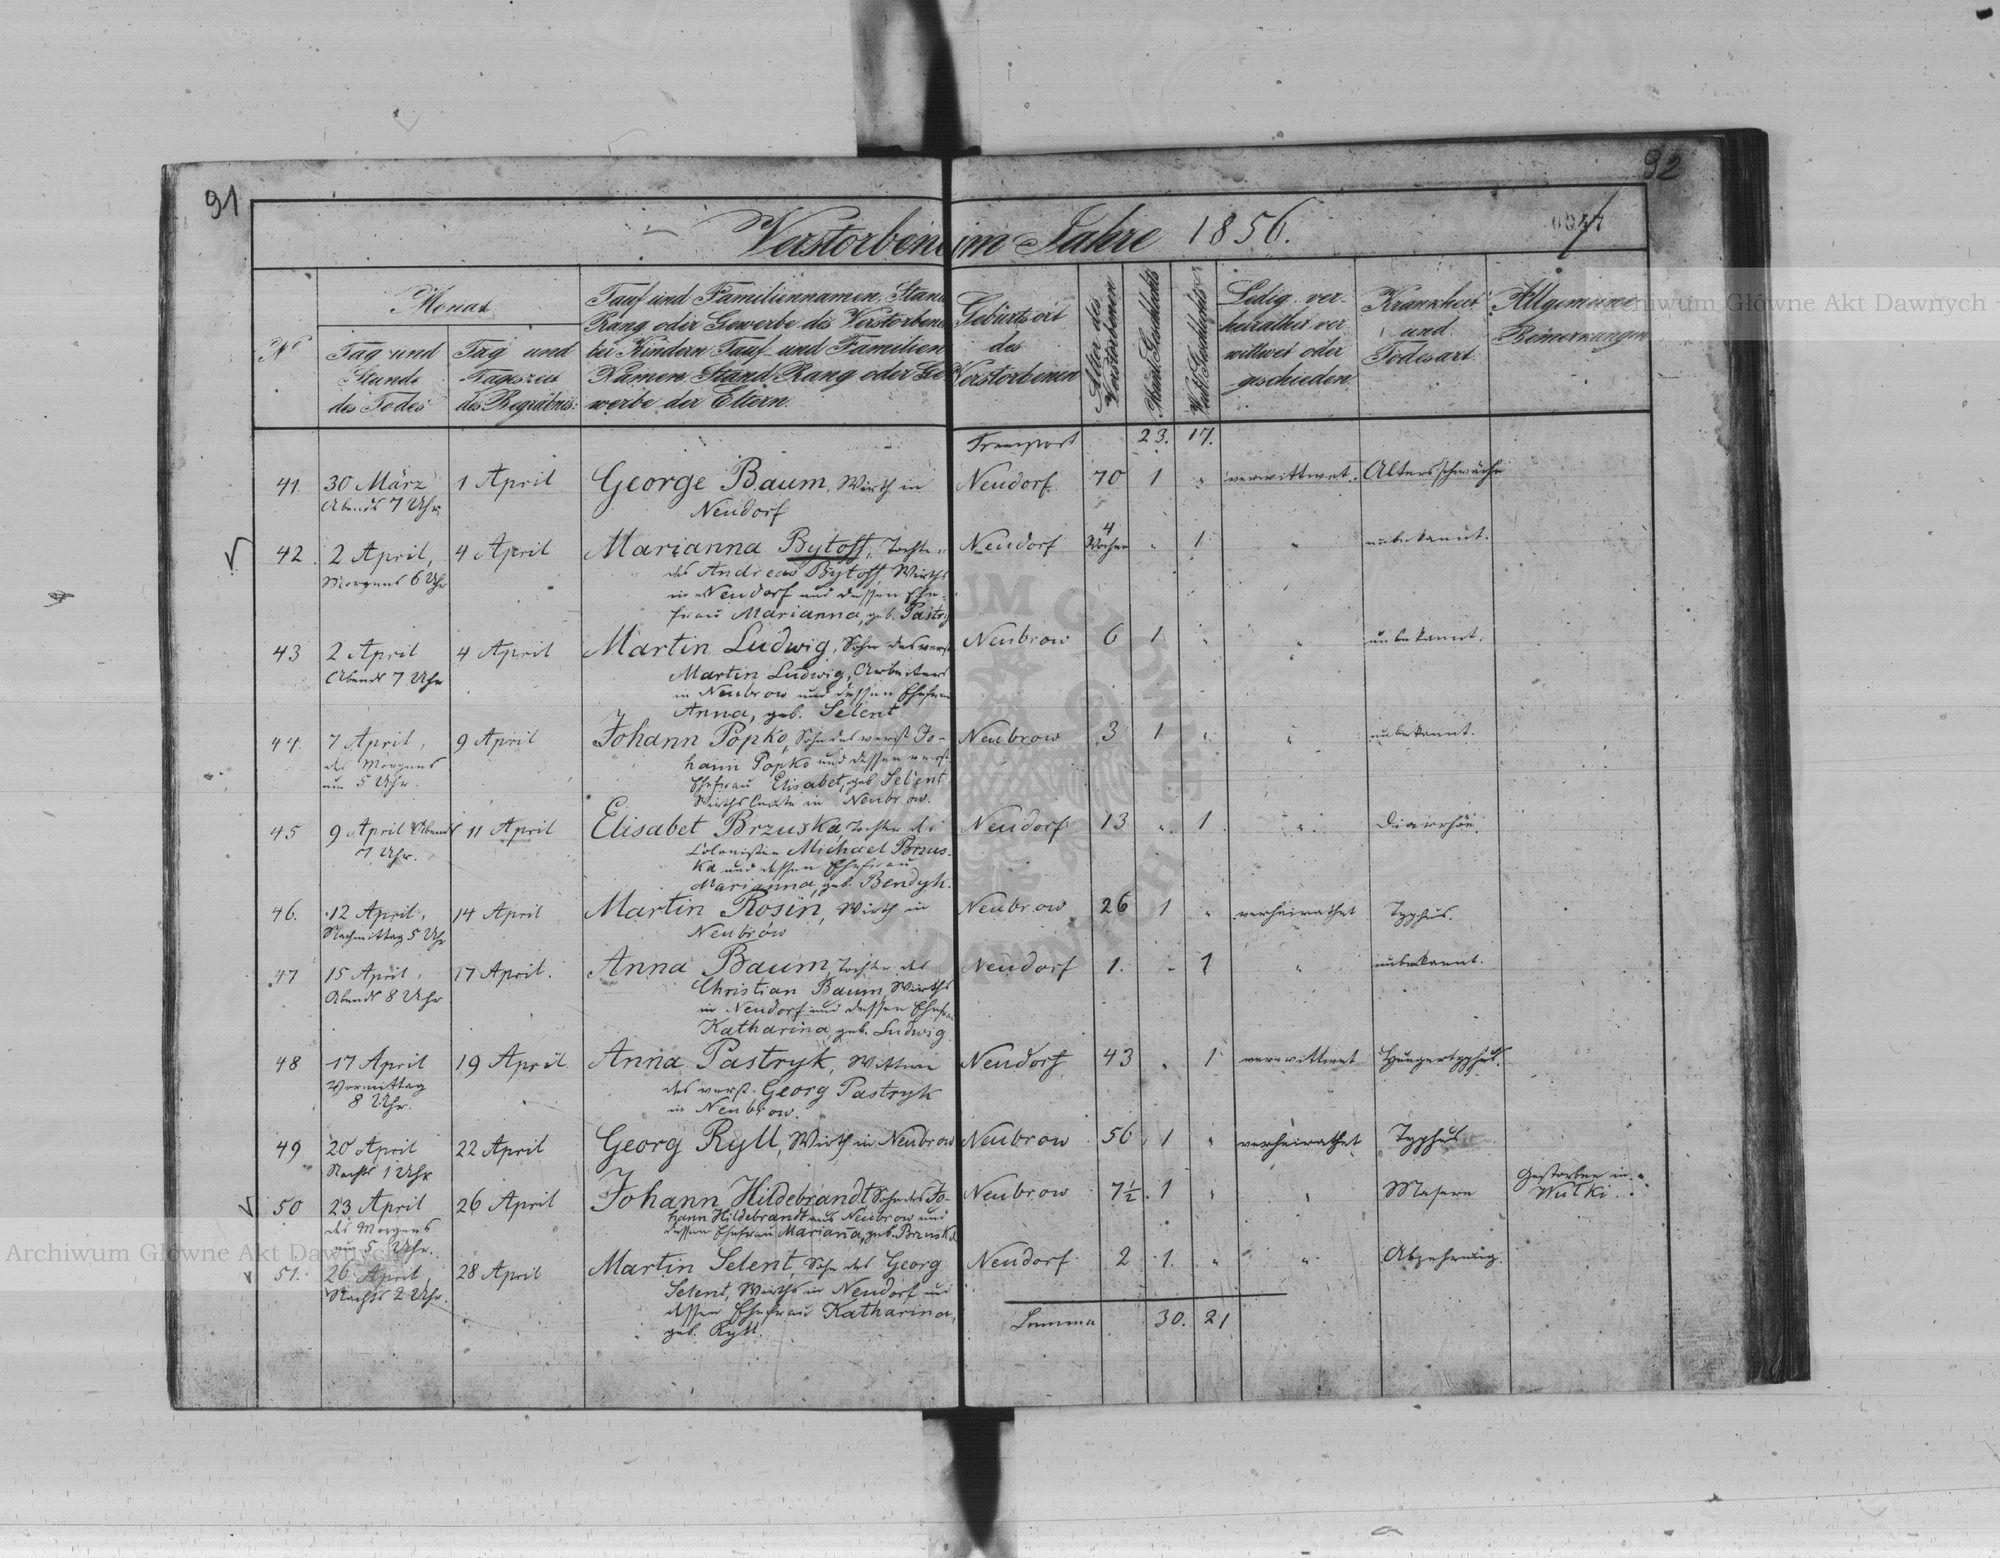 91
92
Verstorbene im Jahre 1856.
Monat
No
Tag und
Stunde
des Todes
Tag und
Tageszeit
des Begräbnis:
Tauf und Familiennamen, Stand
Rang oder Gewerbe des Verstorbene
bei Kindern Tauf- und Familien
Namen Stand Rang oder Ge
werbe der Eltern.
Geburtsort
des
Verstorbenen
Alter des
Verstorbenen
Mänl. Geschlechts
Weibl. Geschlechts
Ledig, ver-
heirathet ver
wittwet oder
geschieden
Krankheit
und
Todesart
Allgemeine
Bemerkungen
Archiwum Główne Akt Dawnych
Transport 23. 17.
41. 30 März 1 April George Baum, Wirth in Neudorf 70 1 " verwittwet. Altersschwäche
Abends 7 Uhr
Neudorf
42. 2 April, 4 April Marianna Bytoff, Tochter Neudorf 4 Wochen " 1 " unbekannt.
Morgens 6 Uhr
des Andreas Bytoff Wirths
in Neudorf und dessen Ehe-
frau Marianna, geb. Pastry
43 2 April 4 April Martin Ludwig, Sohn des verst Neubrow 6 1 " " unbekannt.
Abends 7 Uhr
Martin Ludwig, Arbeiters
in Neubrow und dessen Ehefrau
Anna, geb. Selent
44. 7 April, 9 April Johann Popko, Sohn des verst Jo- Neubrow 3 1 " " unbekannt.
des Morgens
um 5 Uhr.
hann Popko und dessen verst
Ehefrau Elisabet, geb Selent
Wirthsleute in Neubrow.
45 9 April Abends 11 April Elisabet Brzuska, Tochter de Neudorf 13 " 1 " Diarrhöe.
7 Uhr.
Colonisten Michael Brzus-
ka und dessen Ehefrau
Marianna, geb. Bendyk.
46. 12 April, 14 April Martin Rosin, Wirth in Neubrow 26 1 " verheirathet Typhus.
Nachmittag 5 Uhr
Neubrow
47 15 April, 17 April. Anna Baum, Tochter des Neudorf 1. " 1 " unbekannt.
Abends 8 Uhr
Christian Baum, Wirths
in Neudorf und dessen Ehefrau
Katharina, geb. Ludwig
48 17 April 19 April Anna Pastryk, Wittwe Neudorf 43 " 1 verwittwet Hungertyphus.
Vormittag
8 Uhr.
des verst. Georg Pastryk
in Neubrow.
49 20 April 22 April Georg Ryll, Wirth in Neubrow Neubrow 56 1 " verheirathet Typhus
Nachts 1 Uhr
50 23 April 26 April Johann Hildebrandt Sohn des Jo- Neubrow 7½ 1 " " Masern Gestorben in
Wulki.
des Morgens
um 5 Uhr.
hann Hildebrandt aus Neubrow und
dessen Ehefrau Mariana, geb. Brzuska
Archiwum Główne Akt Dawnych
51. 26 April, 28 April Martin Selent, Sohn des Georg Neudorf 2 1. " " Abzehrung.
Nachts 2 Uhr.
Selent, Wirths in Neudorf und
dessen Ehefrau Katharina,
geb. Ryll.
Summa 30. 21